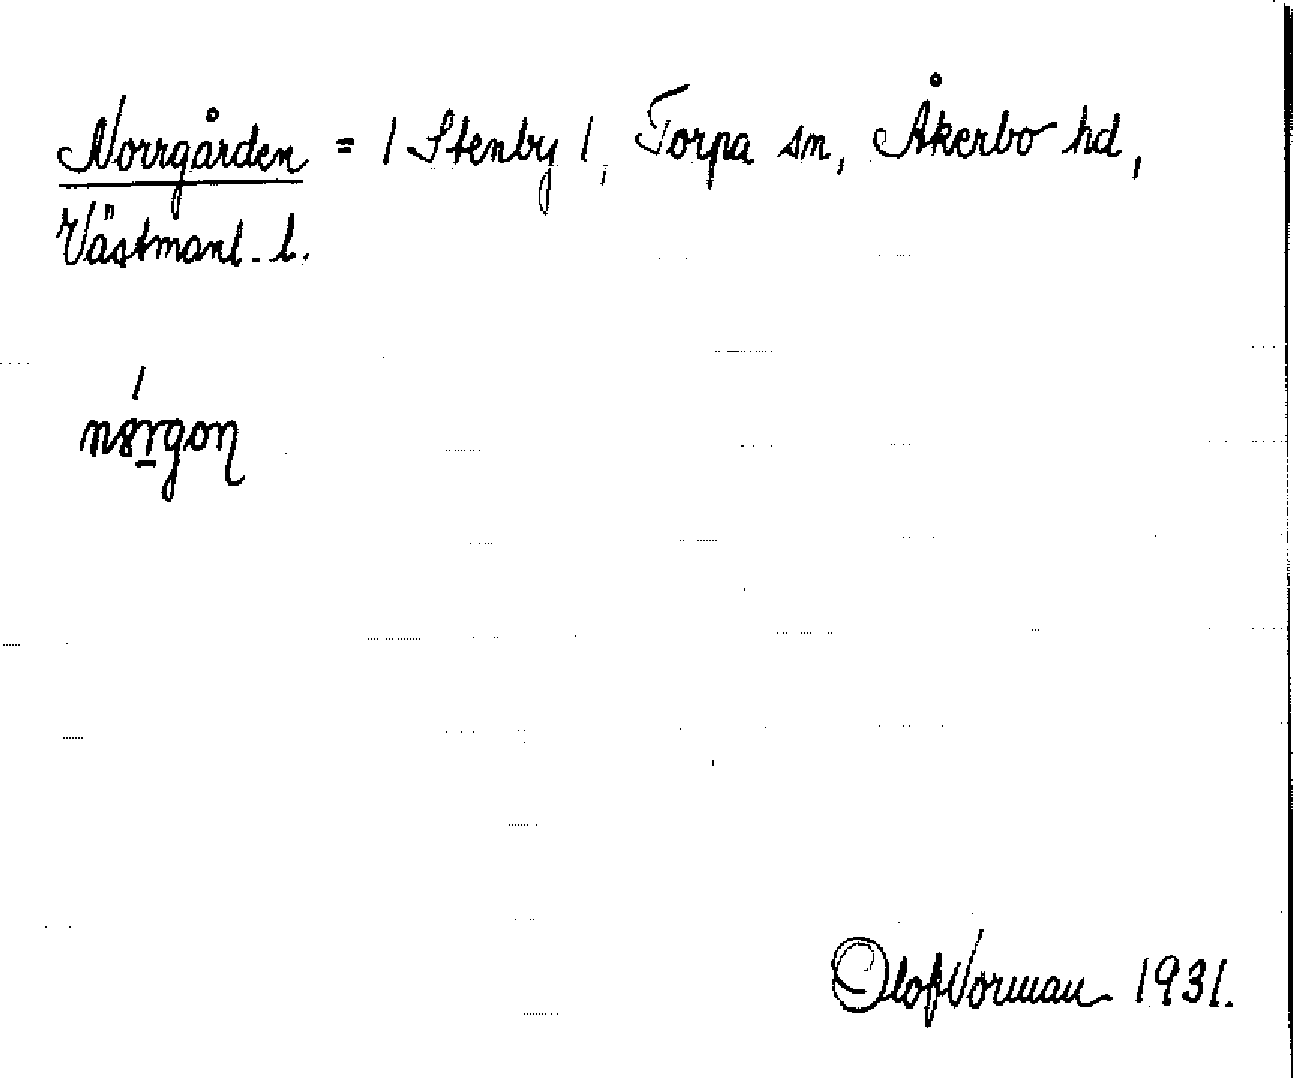 Norrgården = / Stenby /, Torpa sn, Åkerbo hd,
Västmanl. l.
Olof Norman 1931.